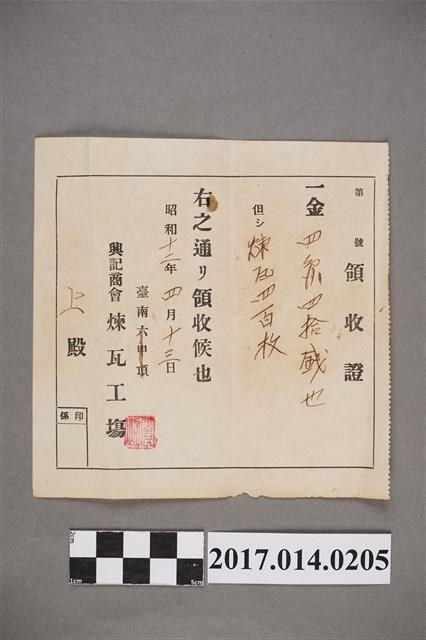 第 號
領收證
一金 四円四拾錢也
但シ 煉瓦四百枚
右之通リ領收候也
昭和十二年四月十三日
臺南六甲頂
興記商會 煉瓦工塲
上 殿
係印
2cm
1cm
5cm
2017.014.0205